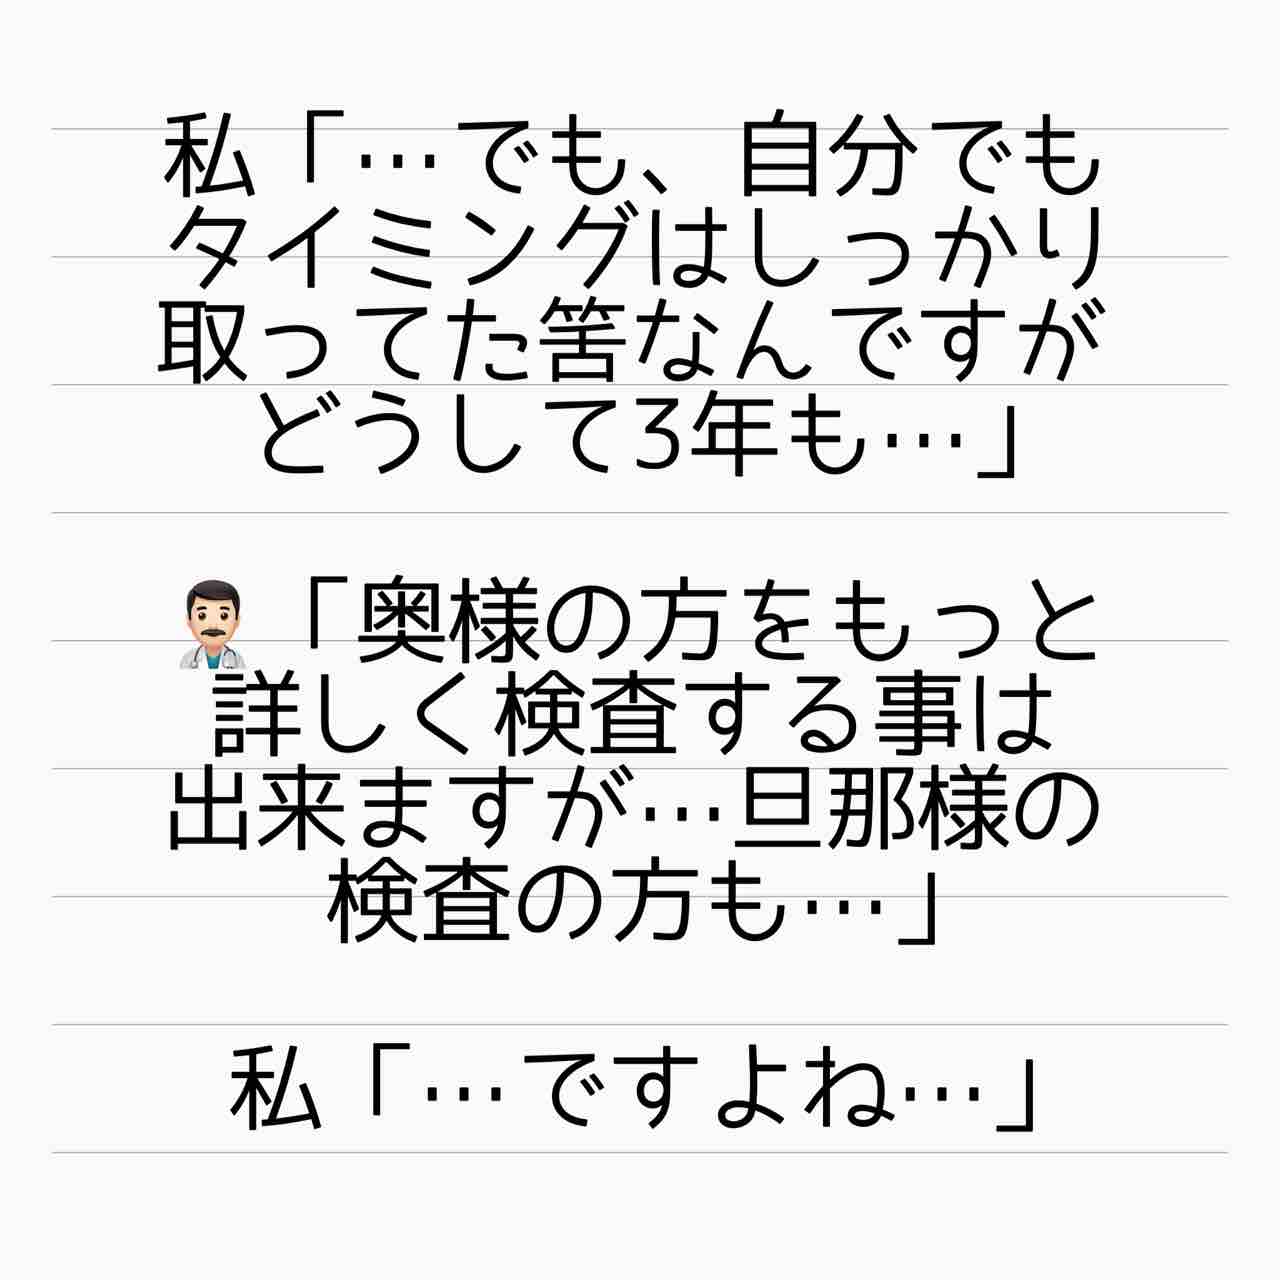 私「…でも、自分でも
タイミングはしっかり
取ってた筈なんですが
どうして3年も…」
👨🏻‍⚕️「奥様の方をもっと
詳しく検査する事は
出来ますが…旦那様の
検査の方も…」
私「…ですよね…」